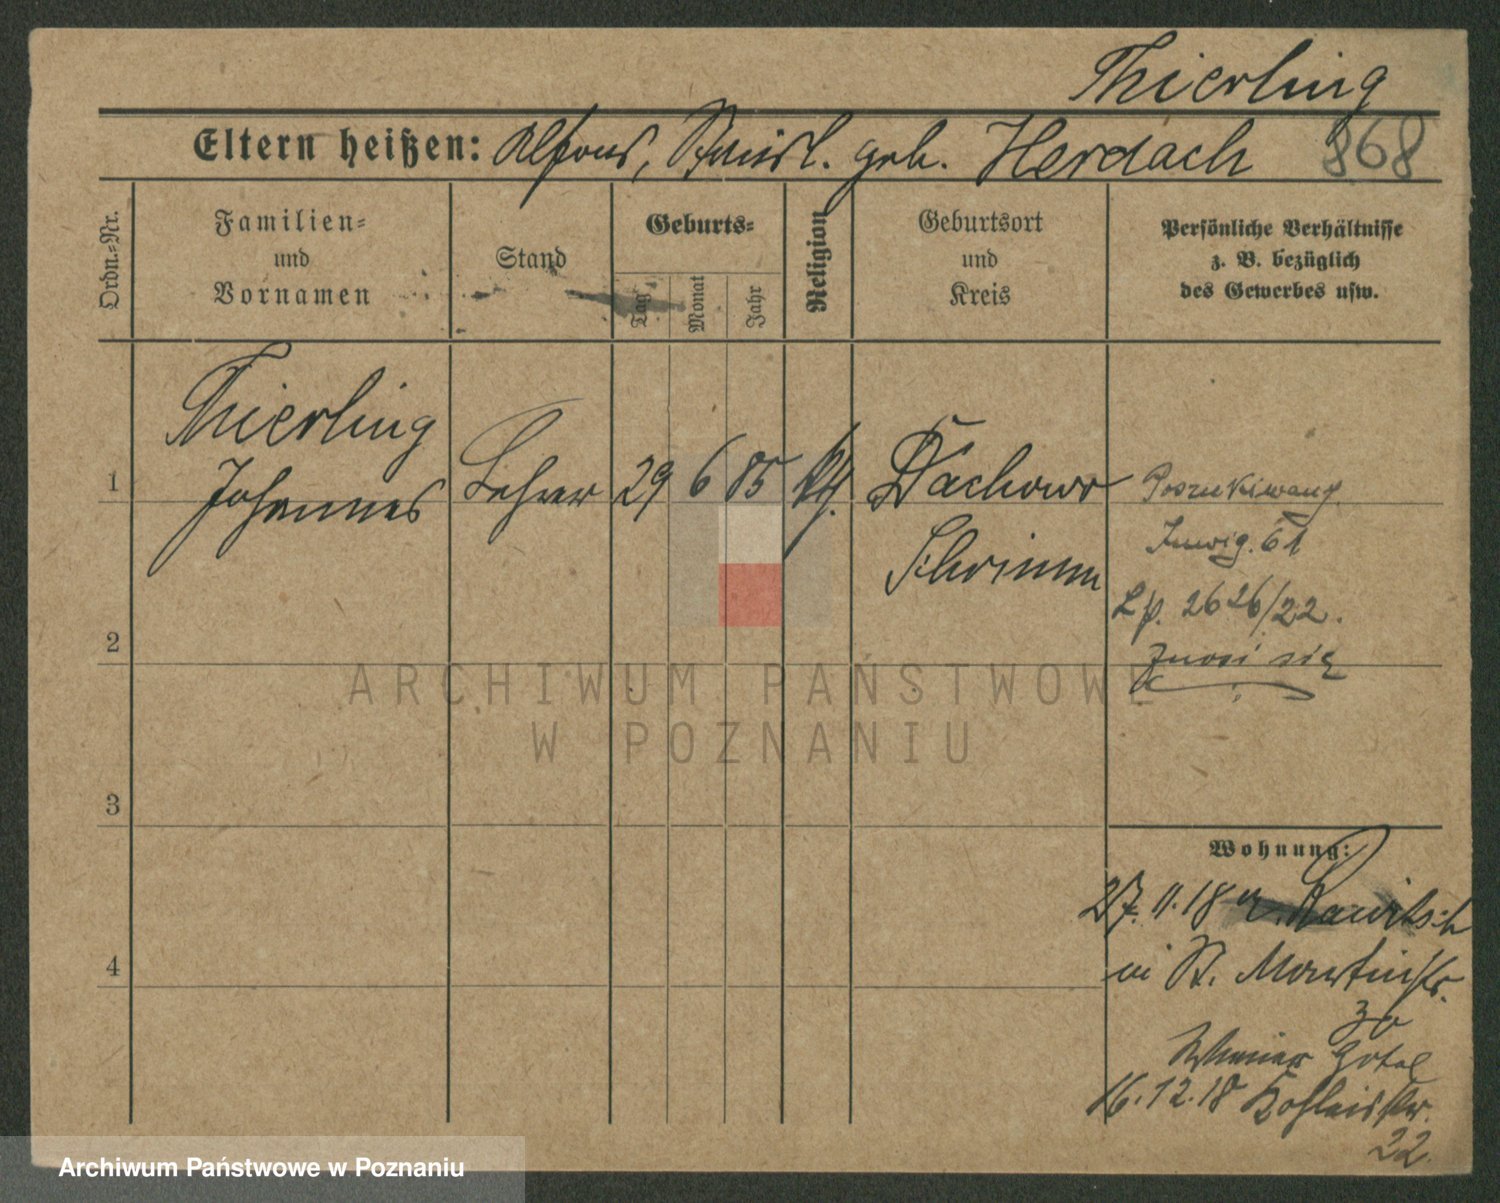 Thierling
Eltern heißen: Alfons, Stanisl. geb. Herdach
868
Ordn.=Nr.
Familien=
und
Vornamen
Stand
Geburts=
Tag
Monat
Jahr
Religion
Geburtsort
und
Kreis
Persönliche Verhältnisse
z. B. bezüglich
des Gewerbes usw.
1
Thierling
Johannes
Lehrer
29 6 85
kth.
Dachowo
Schrimm
Poszukiwany
61
Lp. 2626/22.
się
2
3
4
Wohnung:
27.11.18 v. Rawitsch
in St. Martinstr.
30
Wiener Hotel
16.12.18
22.
ARCHIWUM PAŃSTWOWE
W POZNANIU
Archiwum Państwowe w Poznaniu